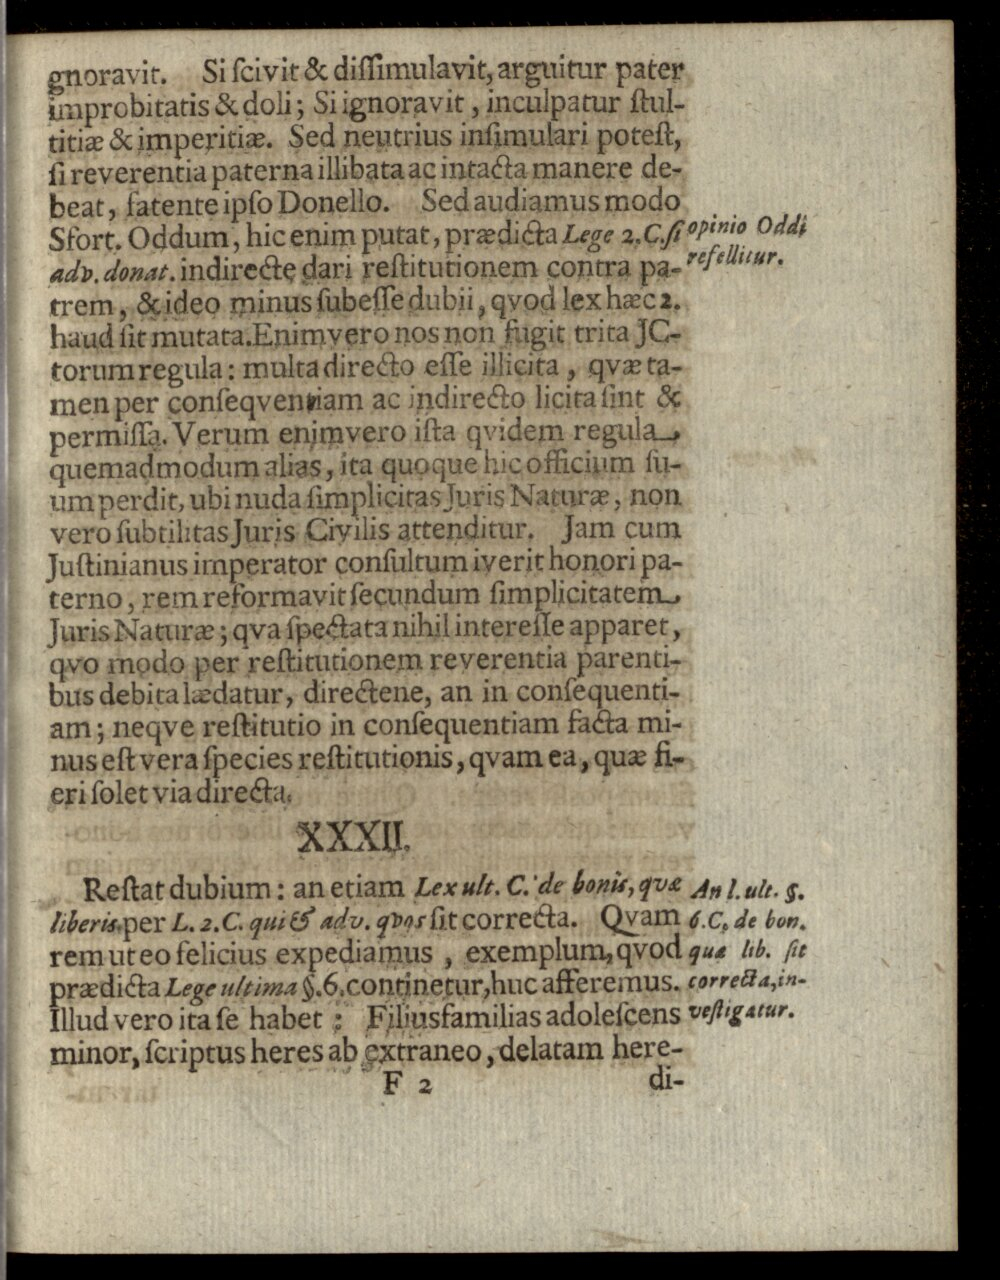 gnoravit. Si ſcivit & diſſimulavit, arguitur pater
improbitatis & doli; Si ignoravit, inculpatur ſtul-
titiæ & imperitiæ. Sed neutrius inſimulari poteſt,
ſi reverentia paterna illibata ac intacta manere de-
beat, fatente ipſo Donello. Sed audiamus modo
Sfort. Oddum, hic enim putat, prædicta Lege 2. C. ſi
adv. donat. indirectè dari reſtitutionem contra pa-
trem, & ideo minus ſubeſſe dubii, qvod lex hæc 2.
haud ſit mutata. Enimvero nos non fugit trita JC-
torum regula: multa directo eſſe illicita, qvæ ta-
men per conſeqventiam ac indirecto licita ſint &
permiſſa. Verum enimvero iſta qvidem regula,
quemadmodum alias, ita quoque hic officium ſu-
um perdit, ubi nuda ſimplicitas Juris Naturæ, non
vero ſubtilitas Juris Civilis attenditur. Jam cum
Juſtinianus imperator conſultum iverit honori pa-
terno, rem reformavit ſecundum ſimplicitatem
Juris Naturæ; qva ſpectata nihil intereſſe apparet,
qvo modo per reſtitutionem reverentia parenti-
bus debita lædatur, directene, an in conſequenti-
am; neqve reſtitutio in conſequentiam facta mi-
nus eſt vera ſpecies reſtitutionis, qvam ea, quæ fi-
eri ſolet via directa.
opinio Oddi
refellitur.
XXXII.
Reſtat dubium: an etiam Lex ult. C. de bonis, qvæ
liberis per L. 2. C. qui & adv. qvos ſit correcta. Qvam
rem ut eo felicius expediamus, exemplum, qvod
prædicta Lege ultima §. 6. continetur, huc afferemus.
Illud vero ita ſe habet: Filiusfamilias adoleſcens
minor, ſcriptus heres ab extraneo, delatam here-
An l. ult. §.
6. C. de bon.
quæ lib. ſit
correcta, in-
veſtigatur.
F 2
di-